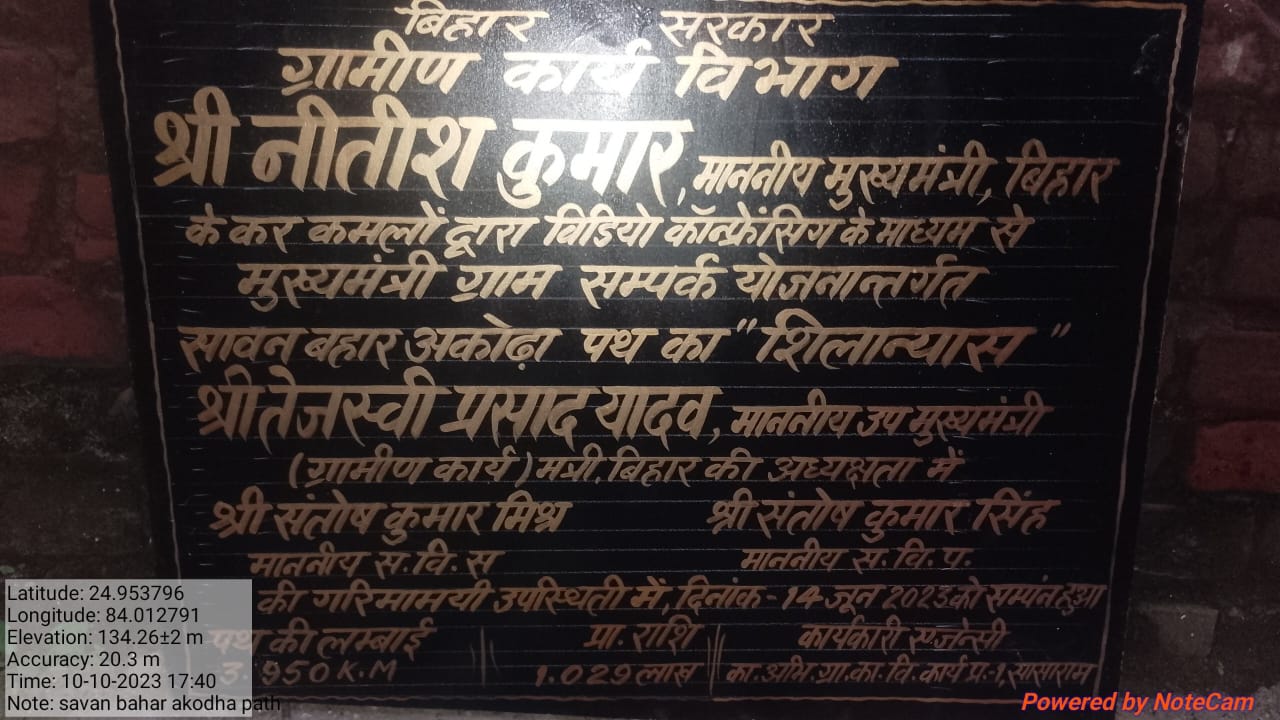 बिहार सरकार
ग्रामीण कार्य विभाग
श्री नीतीश कुमार, माननीय मुख्यमंत्री, बिहार
के कर कमलों द्वारा विडियो कॉन्फ्रेंसिग के माध्यम से
मुख्यमंत्री ग्राम सम्पर्क योजनान्तर्गत
सावन बहार अकोढ़ा पथ का "शिलान्यास"
श्री तेजस्वी प्रसाद यादव, माननीय उप मुख्यमंत्री
(ग्रामीण कार्य) मत्री, बिहार की अध्यक्षता में
श्री संतोष कुमार मिश्र श्री संतोष कुमार सिंह
माननीय स. वि. स माननीय स. वि. प.
की गरिमामयी उपस्थिती में, दिनांक - 14 जून 2023 को सम्पंन हुआ
पथ की लम्बाई प्रा. राशि कार्यकारी एजेन्सी
3.950 K.M 1.029 लाख का. अभि. ग्रा. का. वि. कार्य प्र.-1, सासाराम
Latitude: 24.953796
Longitude: 84.012791
Elevation: 134.26±2 m
Accuracy: 20.3 m
Time: 10-10-2023 17:40
Note: savan bahar akodha path
Powered by NoteCam